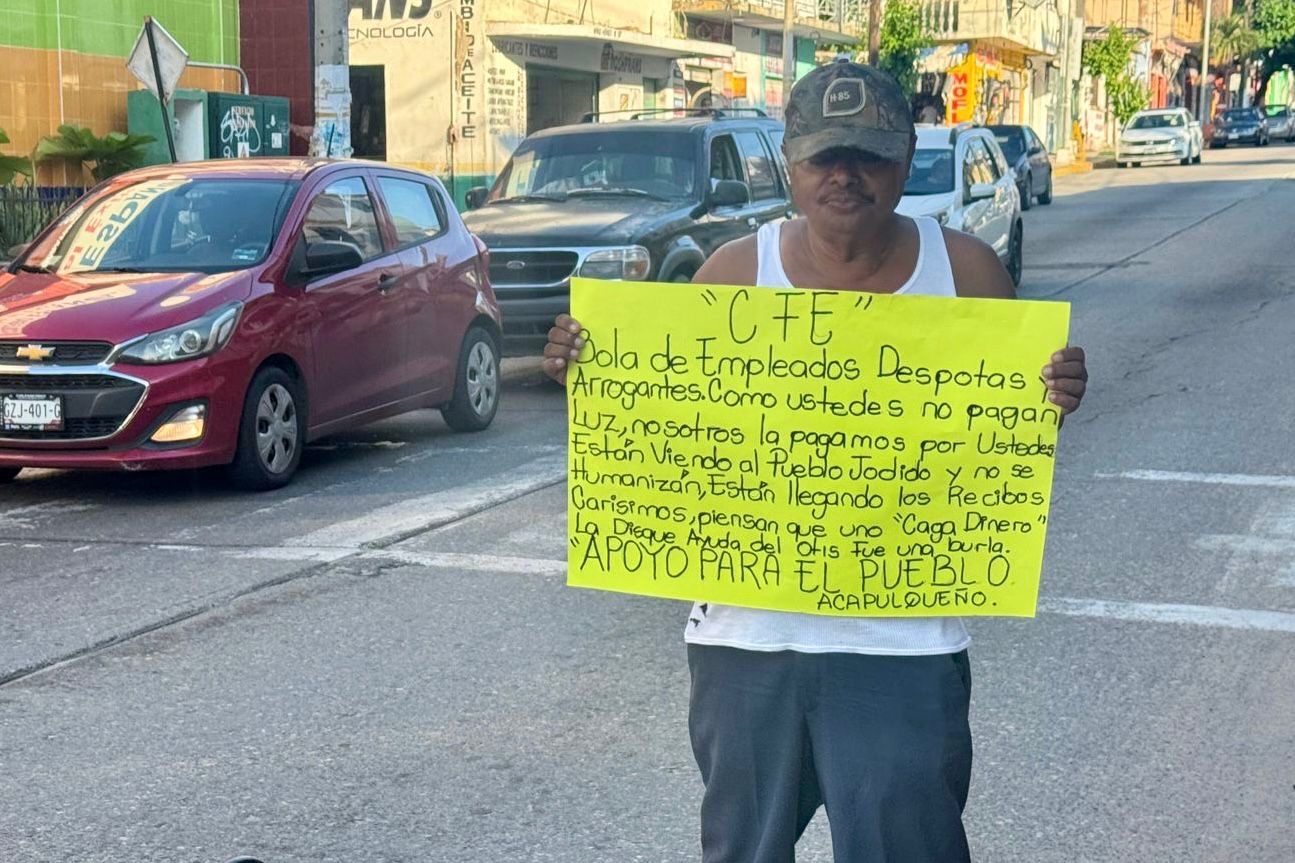 "CFE"
Bola de Empleados Despotas y
Arrogantes. Como ustedes no pagan
Luz, nosotros la pagamos por Ustedes
Están Viendo al Pueblo Jodido y no se
Humanizán, Están llegando los Recibos
Carisimos, piensan que uno "Caga Dinero"
La Disque Ayuda del Otis fue una burla.
"APOYO PARA EL PUEBLO
ACAPULQUEÑO.
H-85
GZJ-401-G
TECNOLOGÍA
ACEITE
MOF